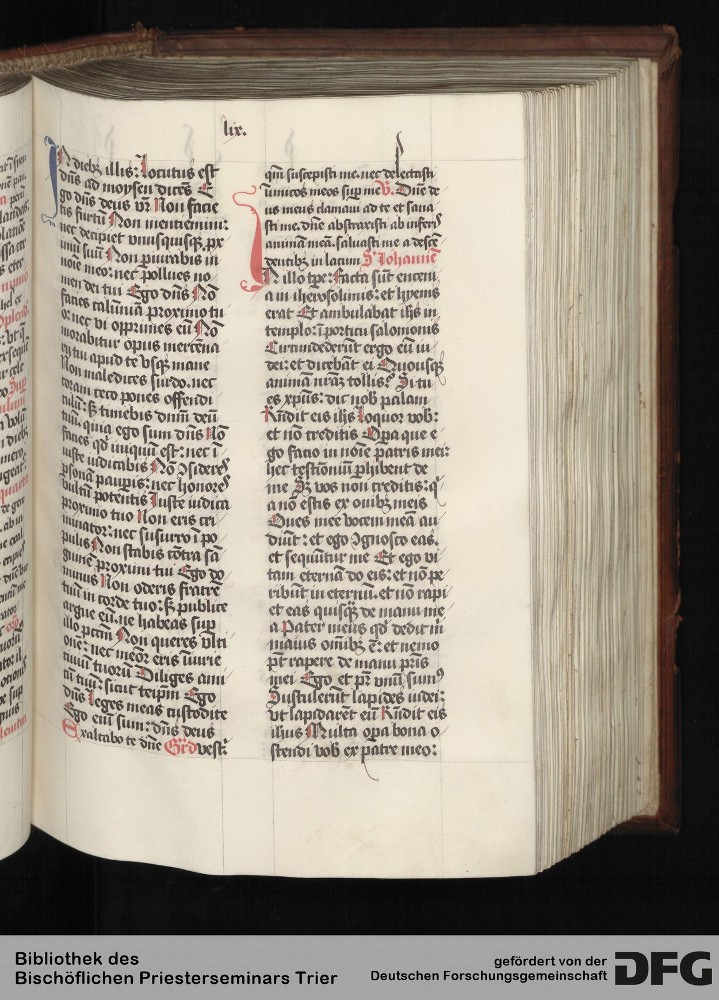 lix.
In diebꝫ illis: Locutus est
dn̄s ad moysen dicēs E
go dn̄s deus vr̄ Non facie
tis furtū Non mentiemini:
nec decipiet vnusquisqꝫ ꝓx
imū suū Non ꝑiurabis in
noīe meo: nec pollues no
men dei tui Ego dn̄s Nō
facies calūniā proximo tu
o: nec vi opprimes eū Nō
morabitur opus mercēna
rij tui apud te vsqꝫ mane
Non maledices surdo. nec
coram ceco pones offendi
culū: sꝫ timebis dnm̄ deū
tuū. quia ego sum dn̄s Nō
facies qd̄ iniquū est: nec ī
iuste iudicabis Nō ꝯsideres
ꝑsonā paupis: nec honores
vultū potentis Iuste iudica
proximo tuo Non eris cri
minator: nec susurro ī po
pulis Non stabis cōtra sā
guinē proximi tui Ego do
minus Non oderis fratrē
tuū in corde tuo: sꝫ publice
argue eū. ne habeas sup
illo pctm̄ Non queres vlti
onē: nec meōr eris iniurie
ciuiū tuorū Diliges ami
cū tuū: sicut teipm̄ Ego
dn̄s Leges meas custodite
Ego eni sum: dn̄s deus
Exaltabo te dn̄e Grd vestr̄:
qm̄ suscepisti me. nec delectasti
inimicos meos suꝑ me V. Dn̄e de
us meus clamaui ad te et sana
sti me. dn̄e abstraxisti ab inferis
animā meā. saluasti me a descē
dentibꝫ in lacum S' Iohannē
In illo tpe: facta sūt enceni
a in iherosolimis: et hyems
erat Et ambulabat ihs in
templo: ī porticu salomonis
Circumdederūt ergo eū iu
dei: et dicebāt ei Quousqꝫ
animā nrāꝫ tollis? Si tu
es xpūs: dic nob palam
Rn̄dit eis ihs Loquor vob:
et nō creditis Opa que e
go facio in noīe patris mei:
hec testiōniū ꝑhibent de
me Sꝫ vos non creditis: q
a nō estis ex ouibꝫ meis
Oues mee vocem meā au
diūt: et ego ꝯgnosco eas.
et sequūtur me Et ego vi
tam eternā do eis: et nō pe
ribūt in eternū. et nō rapi
et eas quisqꝫ de manu me
a Pater meus qd̄ dedit m̄
maius omībꝫ ē: et nemo
pt̄ rapere de manu pr̄is
mei Ego et pr̄ vnū sumꝰ
Sustulerūt lapides iudei:
vt lapidarēt eū Rn̄dit eis
ihūs Multa opa bona o
stendi vob ex patre meo:
Bibliothek des
Bischöflichen Priesterseminars Trier
gefördert von der
Deutschen Forschungsgemeinschaft
DFG